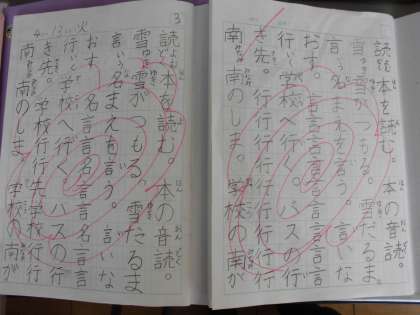 読む本を読む。本の音読。
雪雪がつもる。雪だるま
言名まえを言う。言いな
おす。言言言言言言言
行く学校へ行く。バスの
き先。行行行行行行行
南南のしま。学校の南が
3
4.13火
読む本を読む。本の音読。
雪雪がつもる。雪だるま
言う名まえを言う。言いな
おす。名言言名言言名言言
行く学校へ行く。バスの行
き先。学校行行先学校行行
南南のしま。学校の南が